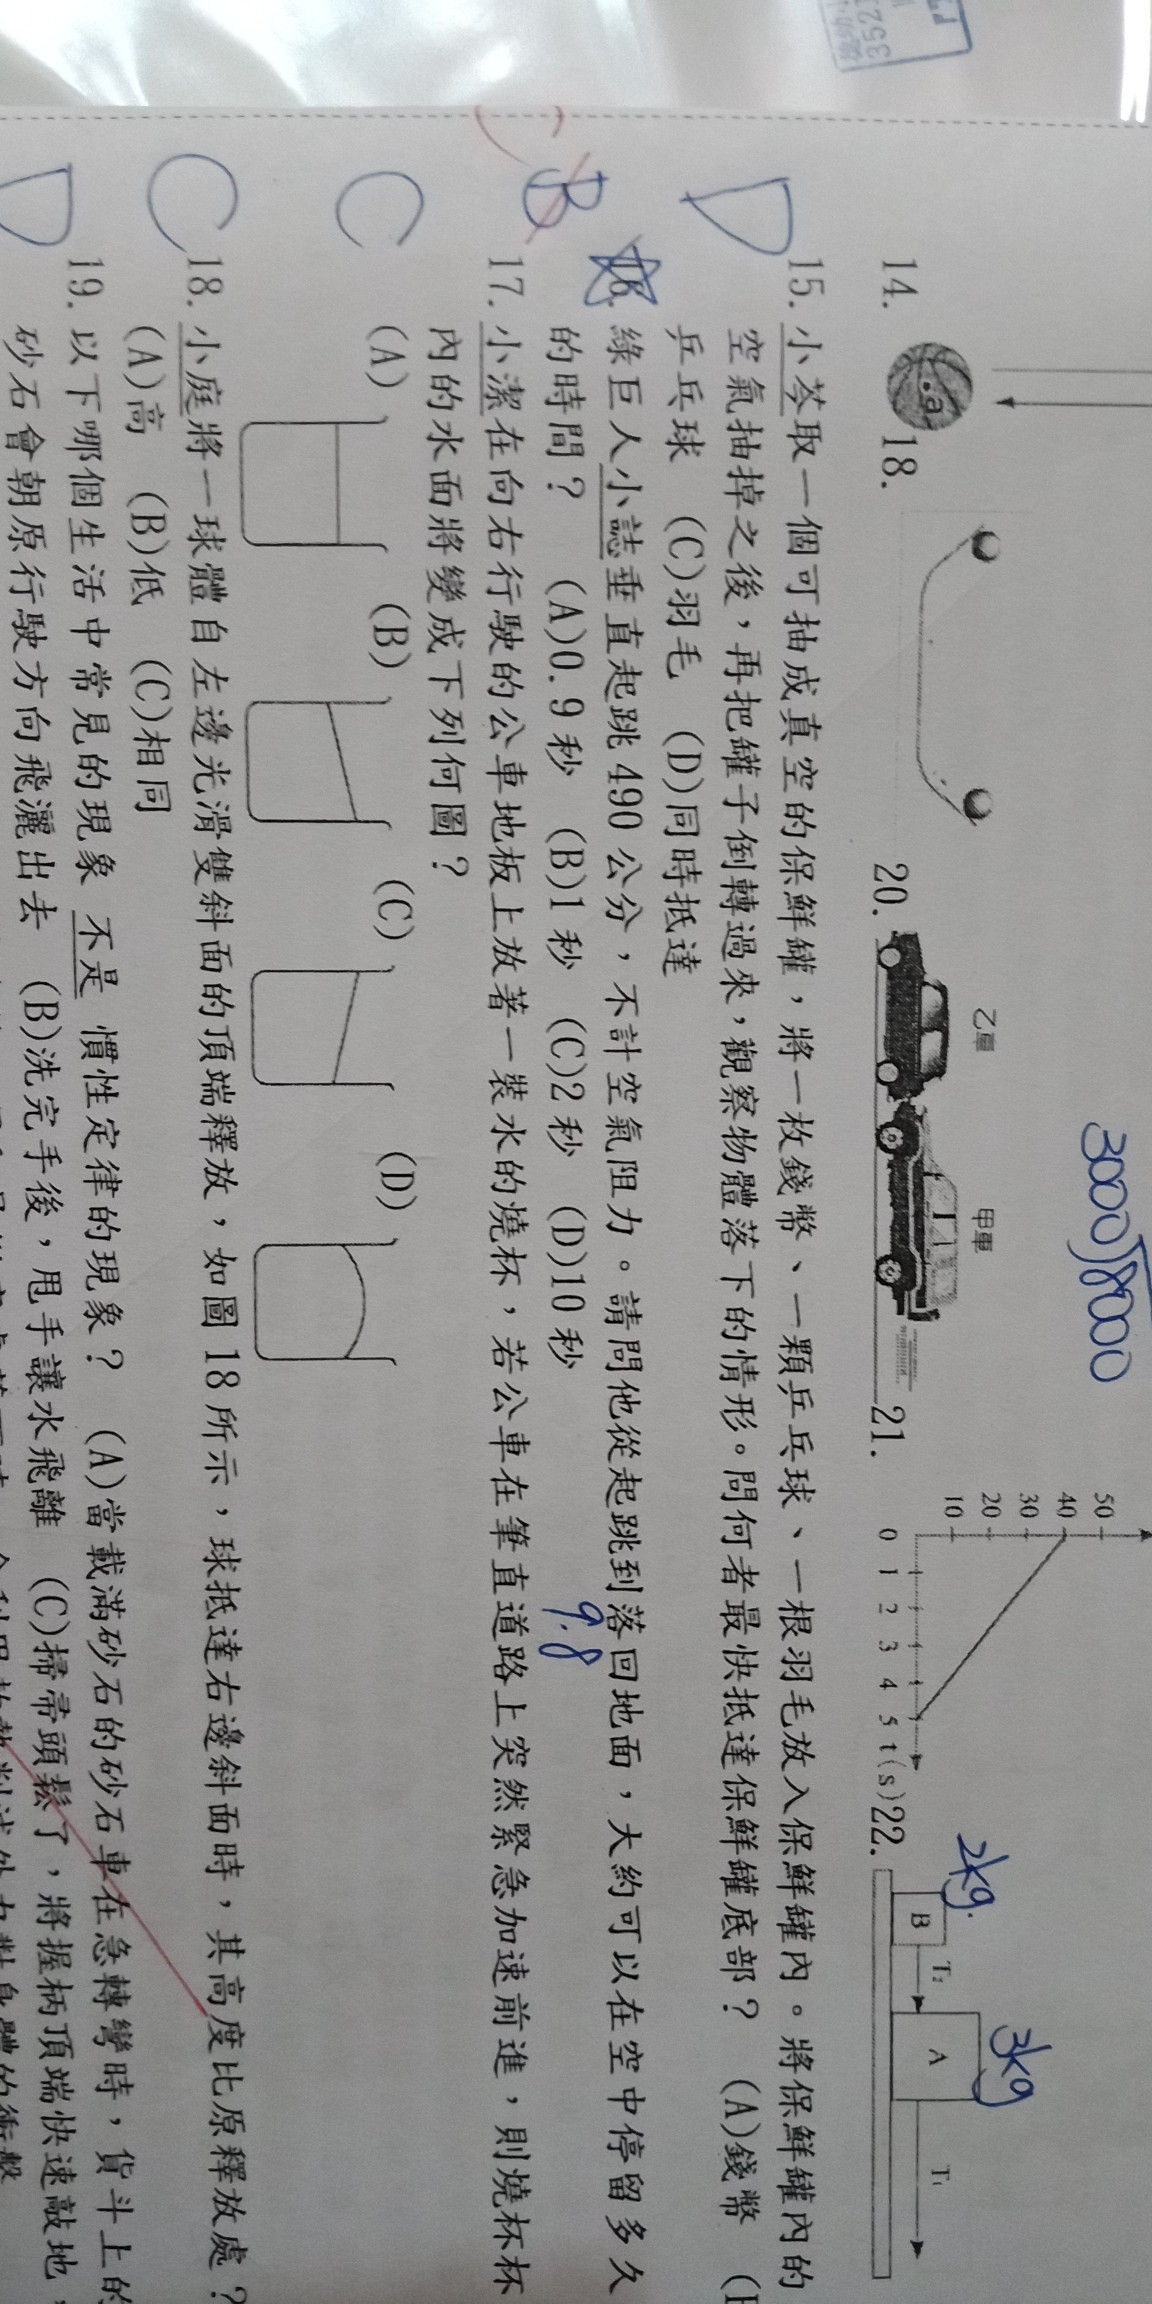 352
3000 8000
14.
a
18.
20.
乙車
甲車
21.
50
40
30
20
10
0 1 2 3 4 5 t(s)
22.
2kg.
3kg
B
T₂
A
T₁
D
15. 小芩取一個可抽成真空的保鮮罐，將一枚錢幣、一顆乒乓球、一根羽毛放入保鮮罐內。將保鮮罐內的
空氣抽掉之後，再把罐子倒轉過來，觀察物體落下的情形。問何者最快抵達保鮮罐底部？ (A)錢幣
乒乓球 (C)羽毛 (D)同時抵達
B
C
16. 綠巨人小誌垂直起跳 490 公分，不計空氣阻力。請問他從起跳到落回地面，大約可以在空中停留多久
的時間？ (A)0.9 秒 (B)1 秒 (C)2 秒 (D)10 秒
9.8
C
17. 小潔在向右行駛的公車地板上放著一裝水的燒杯，若公車在筆直道路上突然緊急加速前進，則燒杯杯
內的水面將變成下列何圖？
(A) (B) (C) (D)
C
18. 小庭將一球體自左邊光滑雙斜面的頂端釋放，如圖 18 所示，球抵達右邊斜面時，其高度比原釋放處？
(A)高 (B)低 (C)相同
D
19. 以下哪個生活中常見的現象 不是 慣性定律的現象？ (A)當載滿砂石的砂石車在急轉彎時，貨斗上的
砂石會朝原行駛方向飛灑出去 (B)洗完手後，甩手讓水飛離 (C)掃帚頭鬆了，將握柄頂端快速敲地，